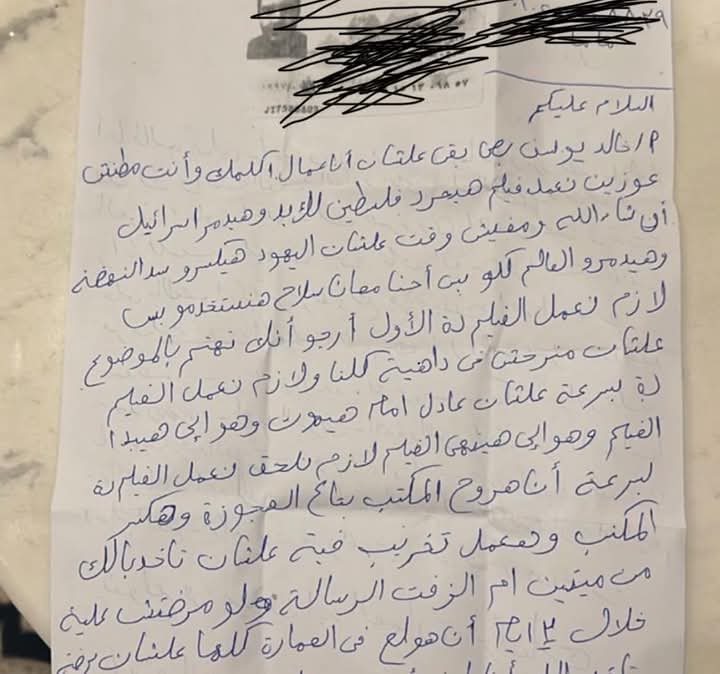 السلام عليكم
م/خالد يوسف بص بقى علشان أنا عمال اكلمك وأنت مطنش
عوزين نعمل فيلم هيحرر فلسطين للأبد وهيدمر اسرائيل
أن شاء الله ومفيش وقت علشان اليهود هيكسرو سد النهضة
وهيدمرو العالم كلو بس أحنا معانا سلاح هنستخدمو بس
لازم نعمل الفيلم دة الأول أرجو أنك تهتم بالموضوع
علشان منرحش فى داهية كلنا ولازم نعمل الفيلم
دة بسرعة علشان عادل امام هيموت وهو إلى هيبدا
الفيلم وهو إلى هينهى الفيلم لازم نلحق نعمل الفيلم دة
بسرعة أنا هروح المكتب بتاع العجوزة وهكسر
المكتب وهعمل تخريب فية علشان تاخد بالك
من ميتين ام الزفت الرسالة ولو مردتش علية
خلال ٢ ايام أنا هولع فى العمارة كلها علشان